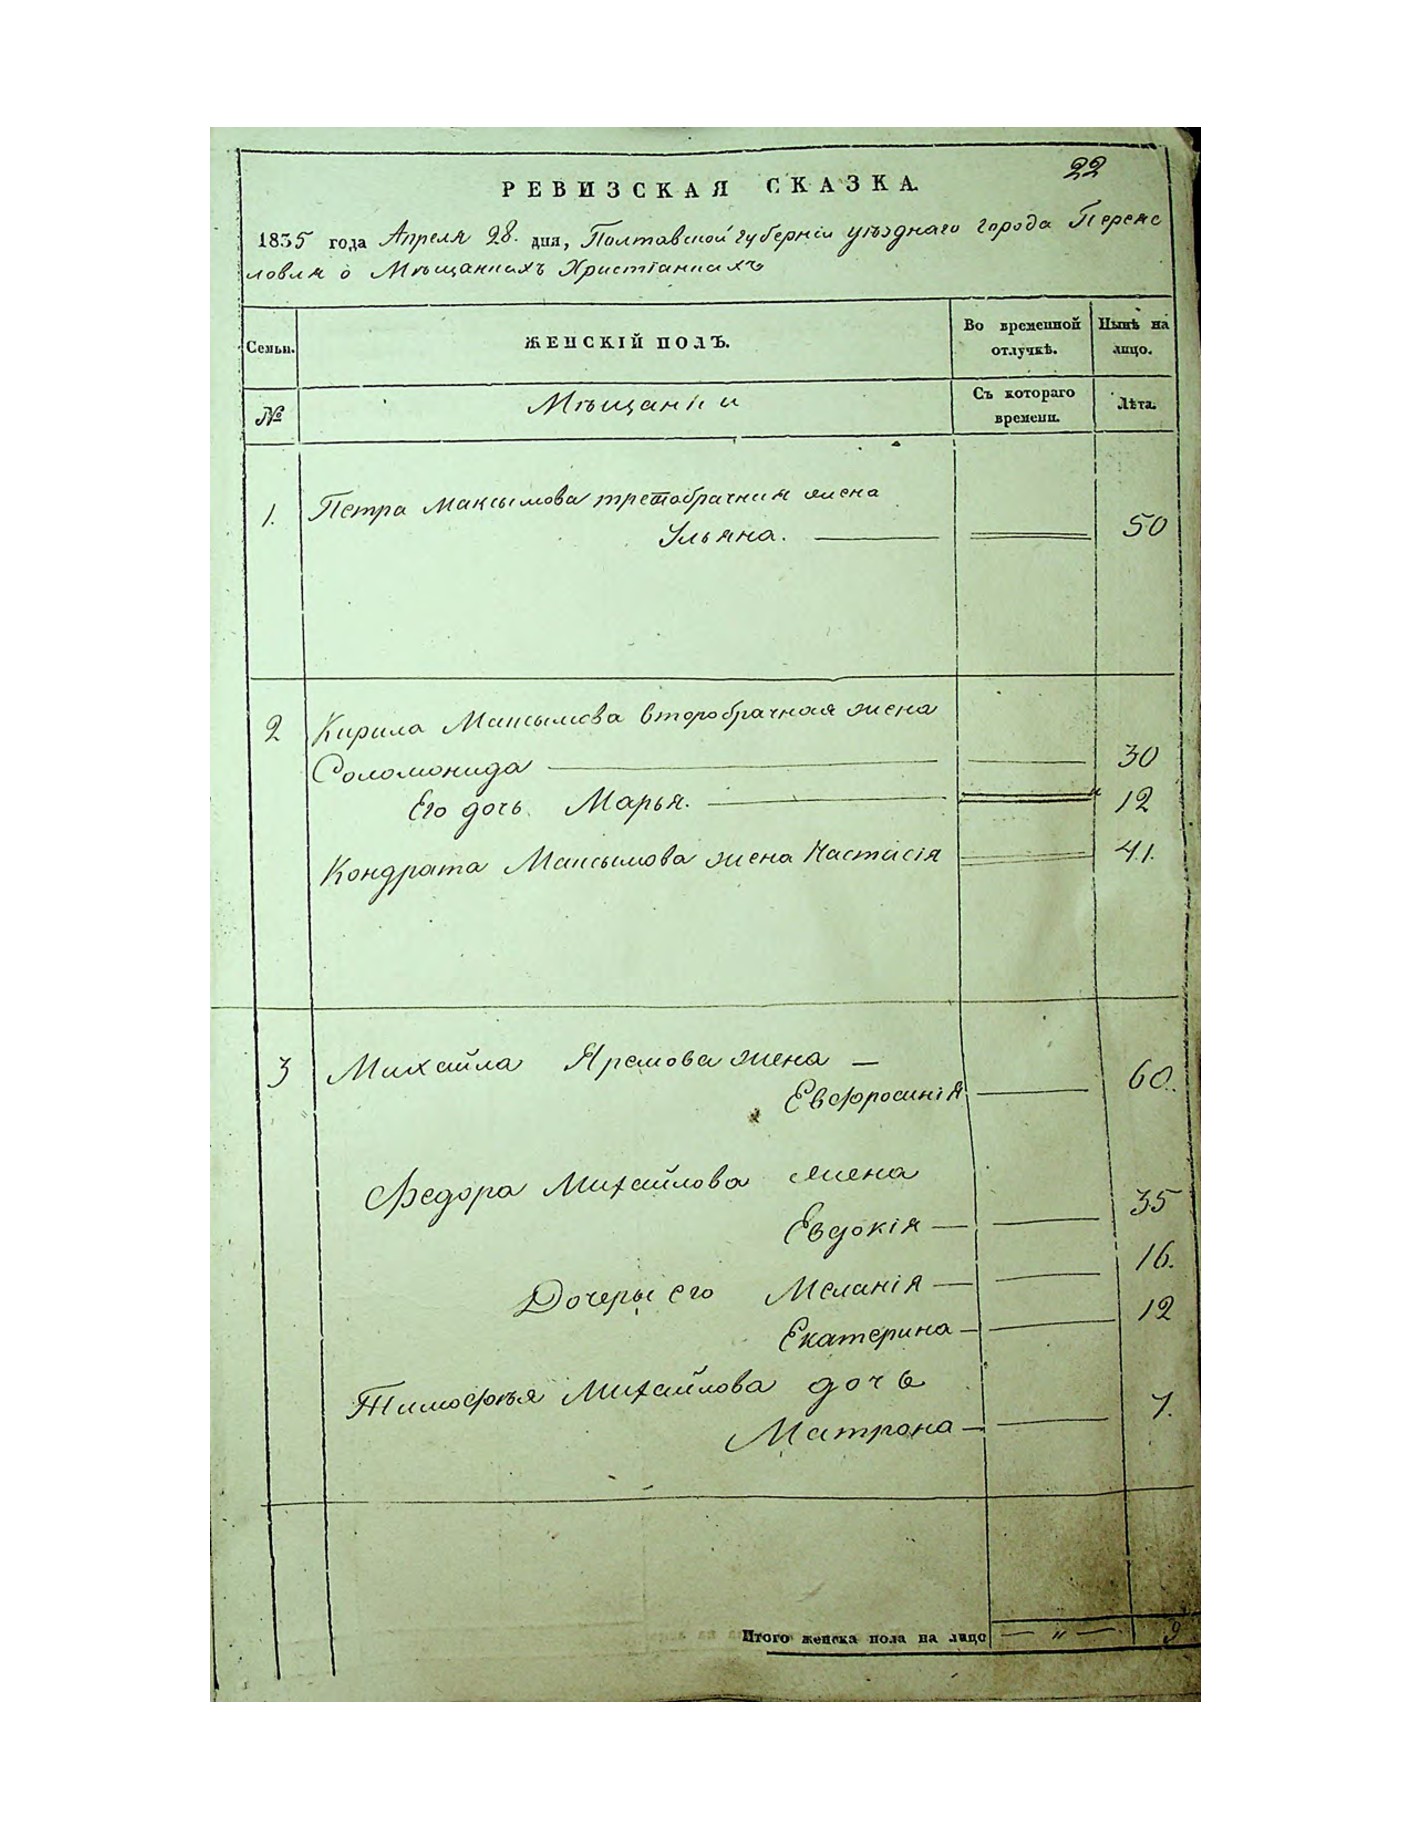 22
РЕВИЗСКАЯ СКАЗКА.
1835 года Апреля 28. дня, Полтавской губерніи уѣзднаго города Переяс
ловля о Мѣщанкахъ Христіанкахъ
Семьи.
ЖЕНСКІЙ ПОЛЪ.
Во временной отлучкѣ.
Нынѣ на лицо.
№
Мѣщанки
Съ котораго времени.
Лѣта.
1. Петра Максымова третобрачная жена
Ульяна. 50
2 Кирила Максымова второбрачная жена
Соломонида 30
Его дочь Марья. 12
Кондрата Максымова жена Настасія 41.
3 Михайла Яремова жена
Евфросинія 60.
Федора Михайлова жена
Евдокія 35
Дочеры его Меланія 16.
Екатерина 12
Тимофѣя Михайлова дочь
Матрона 7.
Итого женска пола на лицо — " — 9